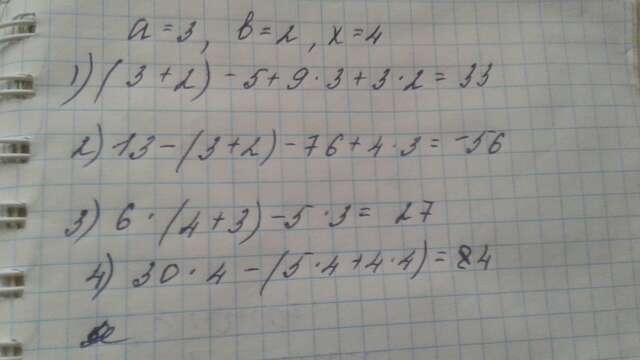 a = 3, b = 2, x = 4
1) (3 + 2) - 5 + 9 · 3 + 3 · 2 = 33
2) 13 - (3 + 2) - 76 + 4 · 3 = -56
3) 6 · (4 + 3) - 5 · 3 = 27
4) 30 · 4 - (5 · 4 + 4 · 4) = 84